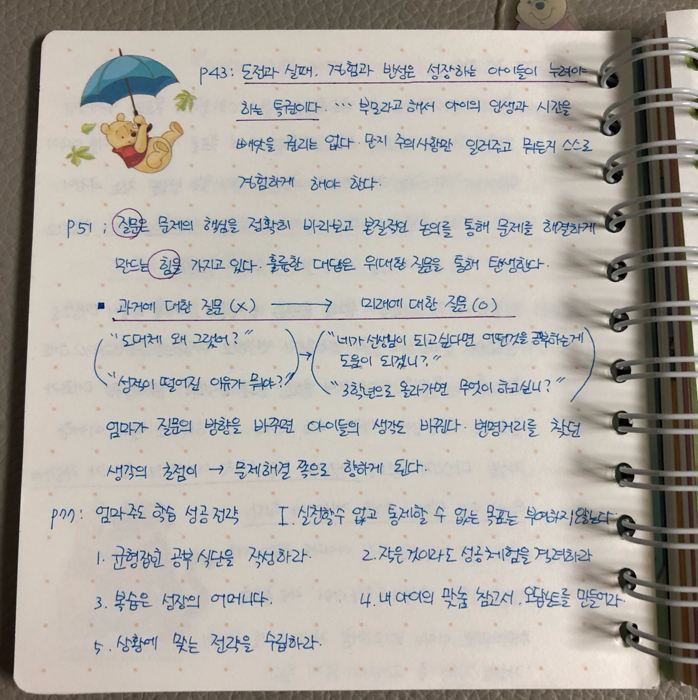 p43 : 도전과 실패. 경험과 반성은 성장하는 아이들이 누려야
하는 특권이다. ... 부모라고 해서 아이의 인생과 시간을
빼앗을 권리는 없다. 단지 주의사항만 일러주고 뭐든지 스스로
경험하게 해야 한다.
p51 : 질문은 문제의 핵심을 정확히 바라보고 본질적인 논의를 통해 문제를 해결하게
만드는 힘을 가지고 있다. 훌륭한 대답은 위대한 질문을 통해 탄생한다.
▪ 과거에 대한 질문 (X) → 미래에 대한 질문 (O)
("도대체 왜 그랬어?" → ("네가 선생님이 되고싶다면 어떤것을 공부하는게
도움이 되겠니?"
"성적이 떨어진 이유가 뭐야?") "3학년으로 올라가면 무엇이 하고싶니?")
엄마가 질문의 방향을 바꾸면 아이들의 생각도 바뀐다. 변명거리를 찾던
생각의 초점이 → 문제해결 쪽으로 향하게 된다.
p77 : 엄마주도 학습 성공전략 I. 실천할수 없고 통제할 수 없는 목표는 부여하지 않는다
1. 균형잡힌 공부 식단을 작성하라. 2. 작은것이라도 성공체험을 격려하라
3. 복습은 성장의 어머니다. 4. 내 아이의 맞춤 참고서. 오답노트를 만들어라
5. 상황에 맞는 전략을 수립하라.